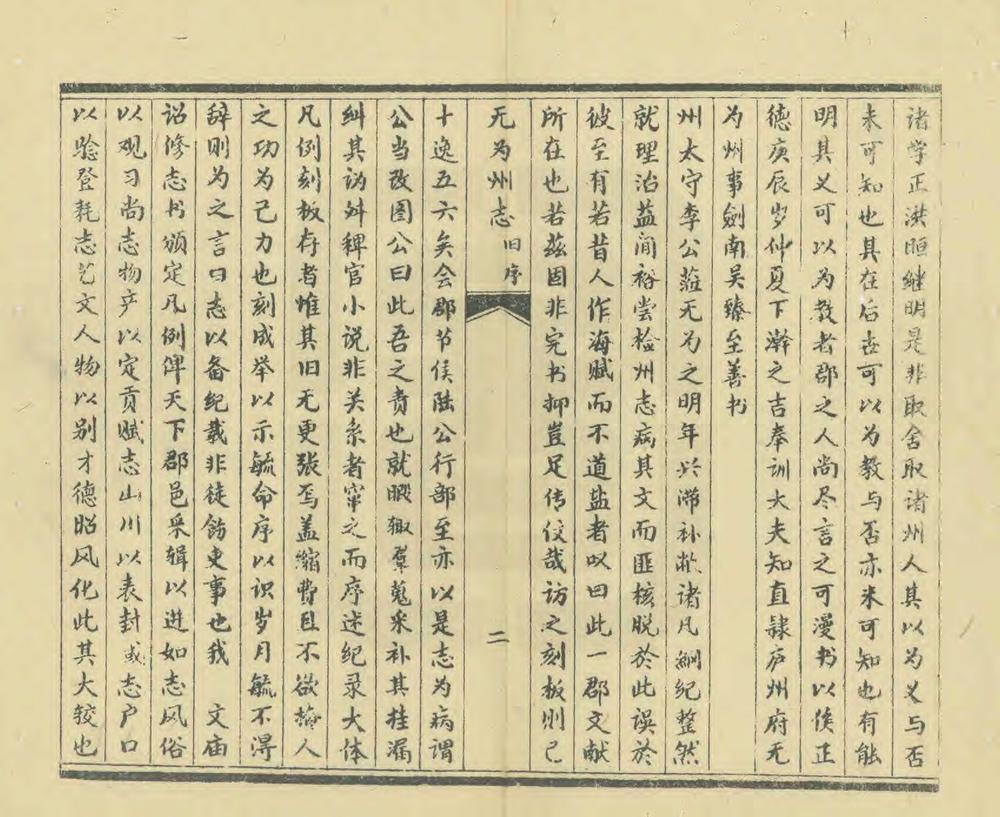 诸学正洪晅继明是非取舍取诸州人其以为义与否
未可知也其在后古可以为教与否亦未可知也有能
明其义可以为教者郡之人尚尽言之可漫书以俟正
德庚辰岁仲夏下澣之吉奉训大夫知直隶庐州府无
为州事剑南吴臻至善书
州太守李公莅无为之明年兴滞补敝诸凡纲纪整然
就理治益间裕尝检州志病其文而匪核脱於此误於
彼至有若昔人作海赋而不道盐者叹曰此一郡文献
所在也若兹固非完书抑岂足传仪哉访之刻板则已
无为州志 旧序
二
十逸五六矣会郡节侯陆公行部至亦以是志为病谓
公当改图公曰此吾之责也就暇辄羣蒐采补其挂漏
纠其讹舛稗官小说非关系者窜之而序述纪录大体
凡例刻板存者惟其旧无更张焉盖缩费且不欲掩人
之功为己力也刻成举以示毓命序以识岁月毓不得
辞则为之言曰志以备纪载非徒饬吏事也我 文庙
诏修志书颁定凡例俾天下郡邑采辑以进如志风俗
以观习尚志物产以定贡赋志山川以表封域志户口
以验登耗志艺文人物以别才德昭风化此其大较也